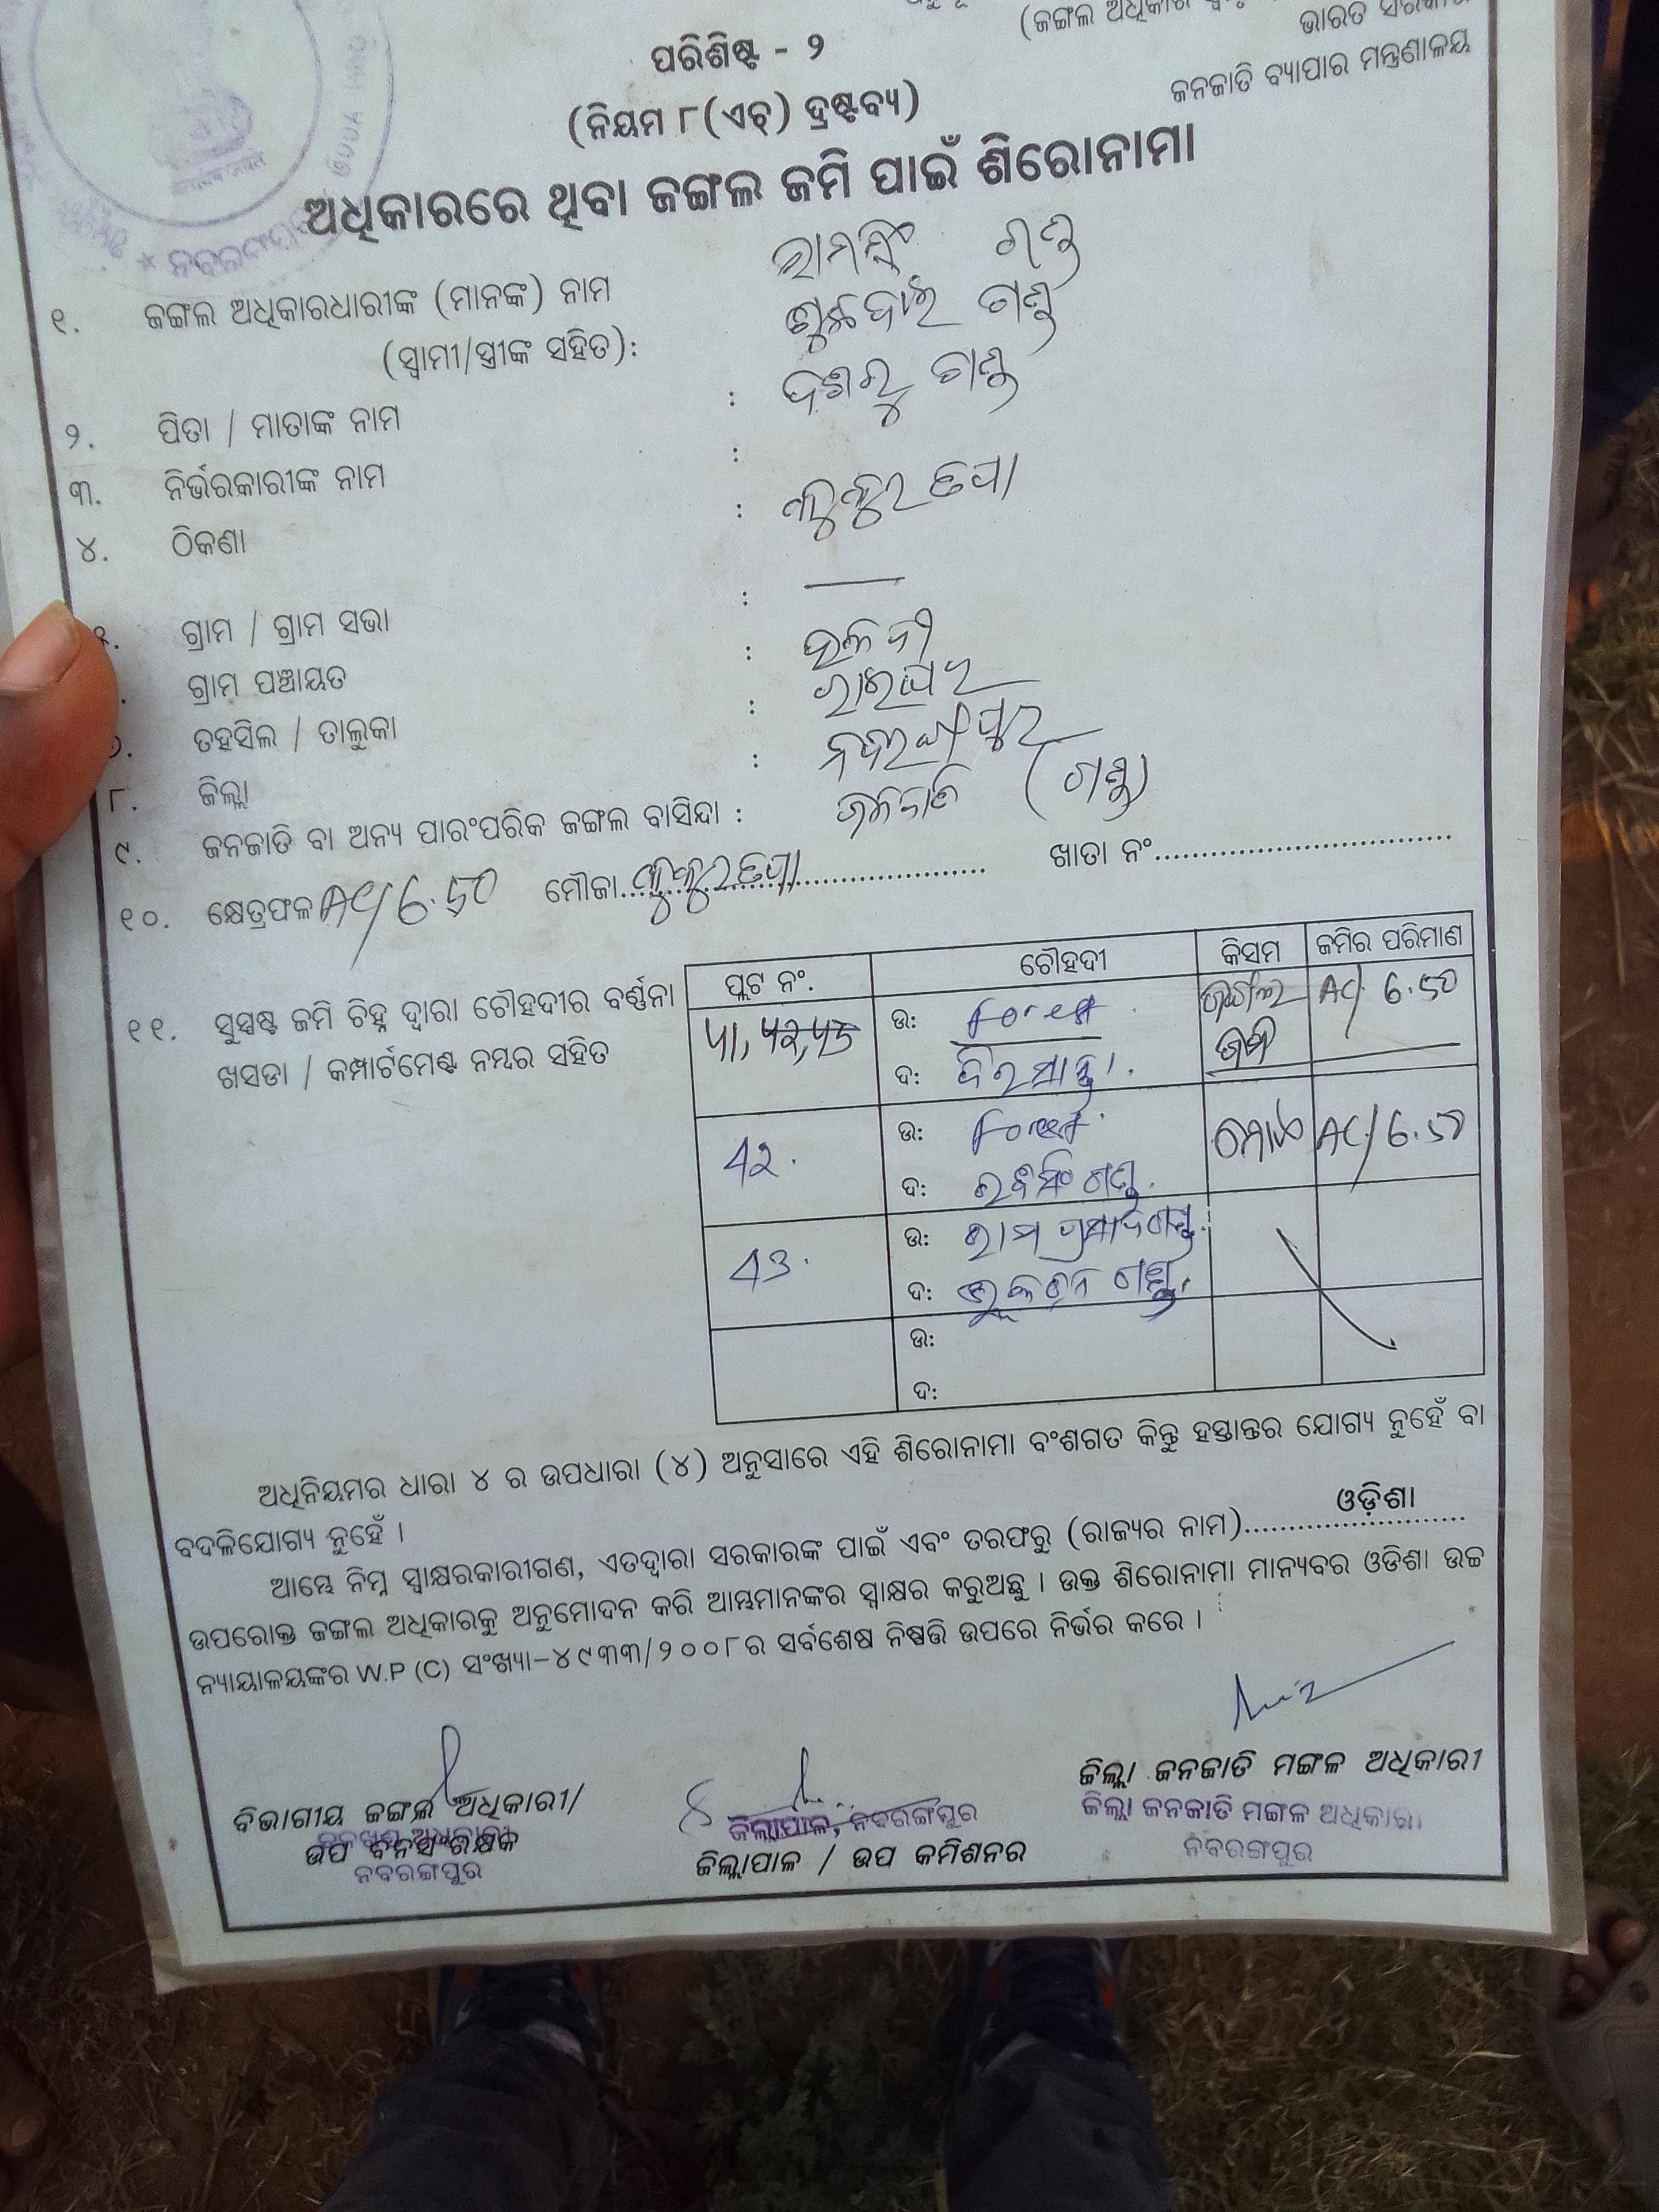 ପରିଶିଷ୍ଟ - ୨
ଭାରତ ସରକାର
ଜନଜାତି ବ୍ୟାପାର ମନ୍ତ୍ରଣାଳୟ
(ନିୟମ ୮(ଏଚ୍) ଦ୍ରଷ୍ଟବ୍ୟ)
ଅଧିକାରରେ ଥିବା ଜଙ୍ଗଲ ଜମି ପାଇଁ ଶିରୋନାମା
୧. ଜଙ୍ଗଲ ଅଧିକାରଧାରୀଙ୍କ (ମାନଙ୍କ) ନାମ ରାମସିଂ ଗଣ୍ଡ
(ସ୍ୱାମୀ/ସ୍ତ୍ରୀଙ୍କ ସହିତ): ଗଣ୍ଡ
୨. ପିତା / ମାତାଙ୍କ ନାମ : ଦଶରୁ ଗଣ୍ଡ
୩. ନିର୍ଭରକାରୀଙ୍କ ନାମ :
୪. ଠିକଣା :
ଗ୍ରାମ / ଗ୍ରାମ ସଭା :
ଗ୍ରାମ ପଞ୍ଚାୟତ :
ତହସିଲ / ତାଲୁକା : ରାଇଘର
୮. ଜିଲ୍ଲା : ନବରଙ୍ଗପୁର
୯. ଜନଜାତି ବା ଅନ୍ୟ ପାରଂପରିକ ଜଙ୍ଗଲ ବାସିନ୍ଦା : ଜନଜାତି (ଗଣ୍ଡ)
୧୦. କ୍ଷେତ୍ରଫଳ AC/ 6.50 ମୌଜା........ ଖାତା ନଂ........
୧୧. ସୁସ୍ପଷ୍ଟ ଜମି ଚିହ୍ନ ଦ୍ୱାରା ଚୌହଦୀର ବର୍ଣ୍ଣନା
ଖସଡା / କମ୍ପାର୍ଟମେଣ୍ଟ ନମ୍ବର ସହିତ
ପ୍ଲଟ ନଂ. ଚୌହଦୀ କିସମ ଜମିର ପରିମାଣ
ଉ: Forest ଜଙ୍ଗଲ AC/ 6.50
ଦ: ଜମି
42. ଉ: Forest ମୋଟ AC/ 6.50
ଦ: ଗଣ୍ଡ.
43. ଉ: ରାମ ପ୍ରସାଦ ଗଣ୍ଡ.
ଦ: ଗଣ୍ଡ.
ଉ:
ଦ:
ଅଧିନିୟମର ଧାରା ୪ ର ଉପଧାରା (୪) ଅନୁସାରେ ଏହି ଶିରୋନାମା ବଂଶଗତ କିନ୍ତୁ ହସ୍ତାନ୍ତର ଯୋଗ୍ୟ ନୁହେଁ ବା
ବଦଳିଯୋଗ୍ୟ ନୁହେଁ ।
ଆମ୍ଭେ ନିମ୍ନ ସ୍ୱାକ୍ଷରକାରୀଗଣ, ଏତଦ୍ଦ୍ୱାରା ସରକାରଙ୍କ ପାଇଁ ଏବଂ ତରଫରୁ (ରାଜ୍ୟର ନାମ)........ ଓଡ଼ିଶା
ଉପରୋକ୍ତ ଜଙ୍ଗଲ ଅଧିକାରକୁ ଅନୁମୋଦନ କରି ଆମ୍ଭମାନଙ୍କର ସ୍ୱାକ୍ଷର କରୁଅଛୁ । ଉକ୍ତ ଶିରୋନାମା ମାନ୍ୟବର ଓଡିଶା ଉଚ୍ଚ
ନ୍ୟାୟାଳୟଙ୍କର W.P (C) ସଂଖ୍ୟା-୪୯୩୩/୨୦୦୮ର ସର୍ବଶେଷ ନିଷ୍ପତ୍ତି ଉପରେ ନିର୍ଭର କରେ ।
ବିଭାଗୀୟ ଜଙ୍ଗଲ ଅଧିକାରୀ/
ଉପ ବନସଂରକ୍ଷକ
ନବରଙ୍ଗପୁର
ଜିଲ୍ଲାପାଳ, ନବରଙ୍ଗପୁର
ଜିଲ୍ଲାପାଳ / ଉପ କମିଶନର
ଜିଲ୍ଲା ଜନଜାତି ମଙ୍ଗଳ ଅଧିକାରୀ
ଜିଲ୍ଲା ଜନଜାତି ମଙ୍ଗଳ ଅଧିକାରୀ
ନବରଙ୍ଗପୁର